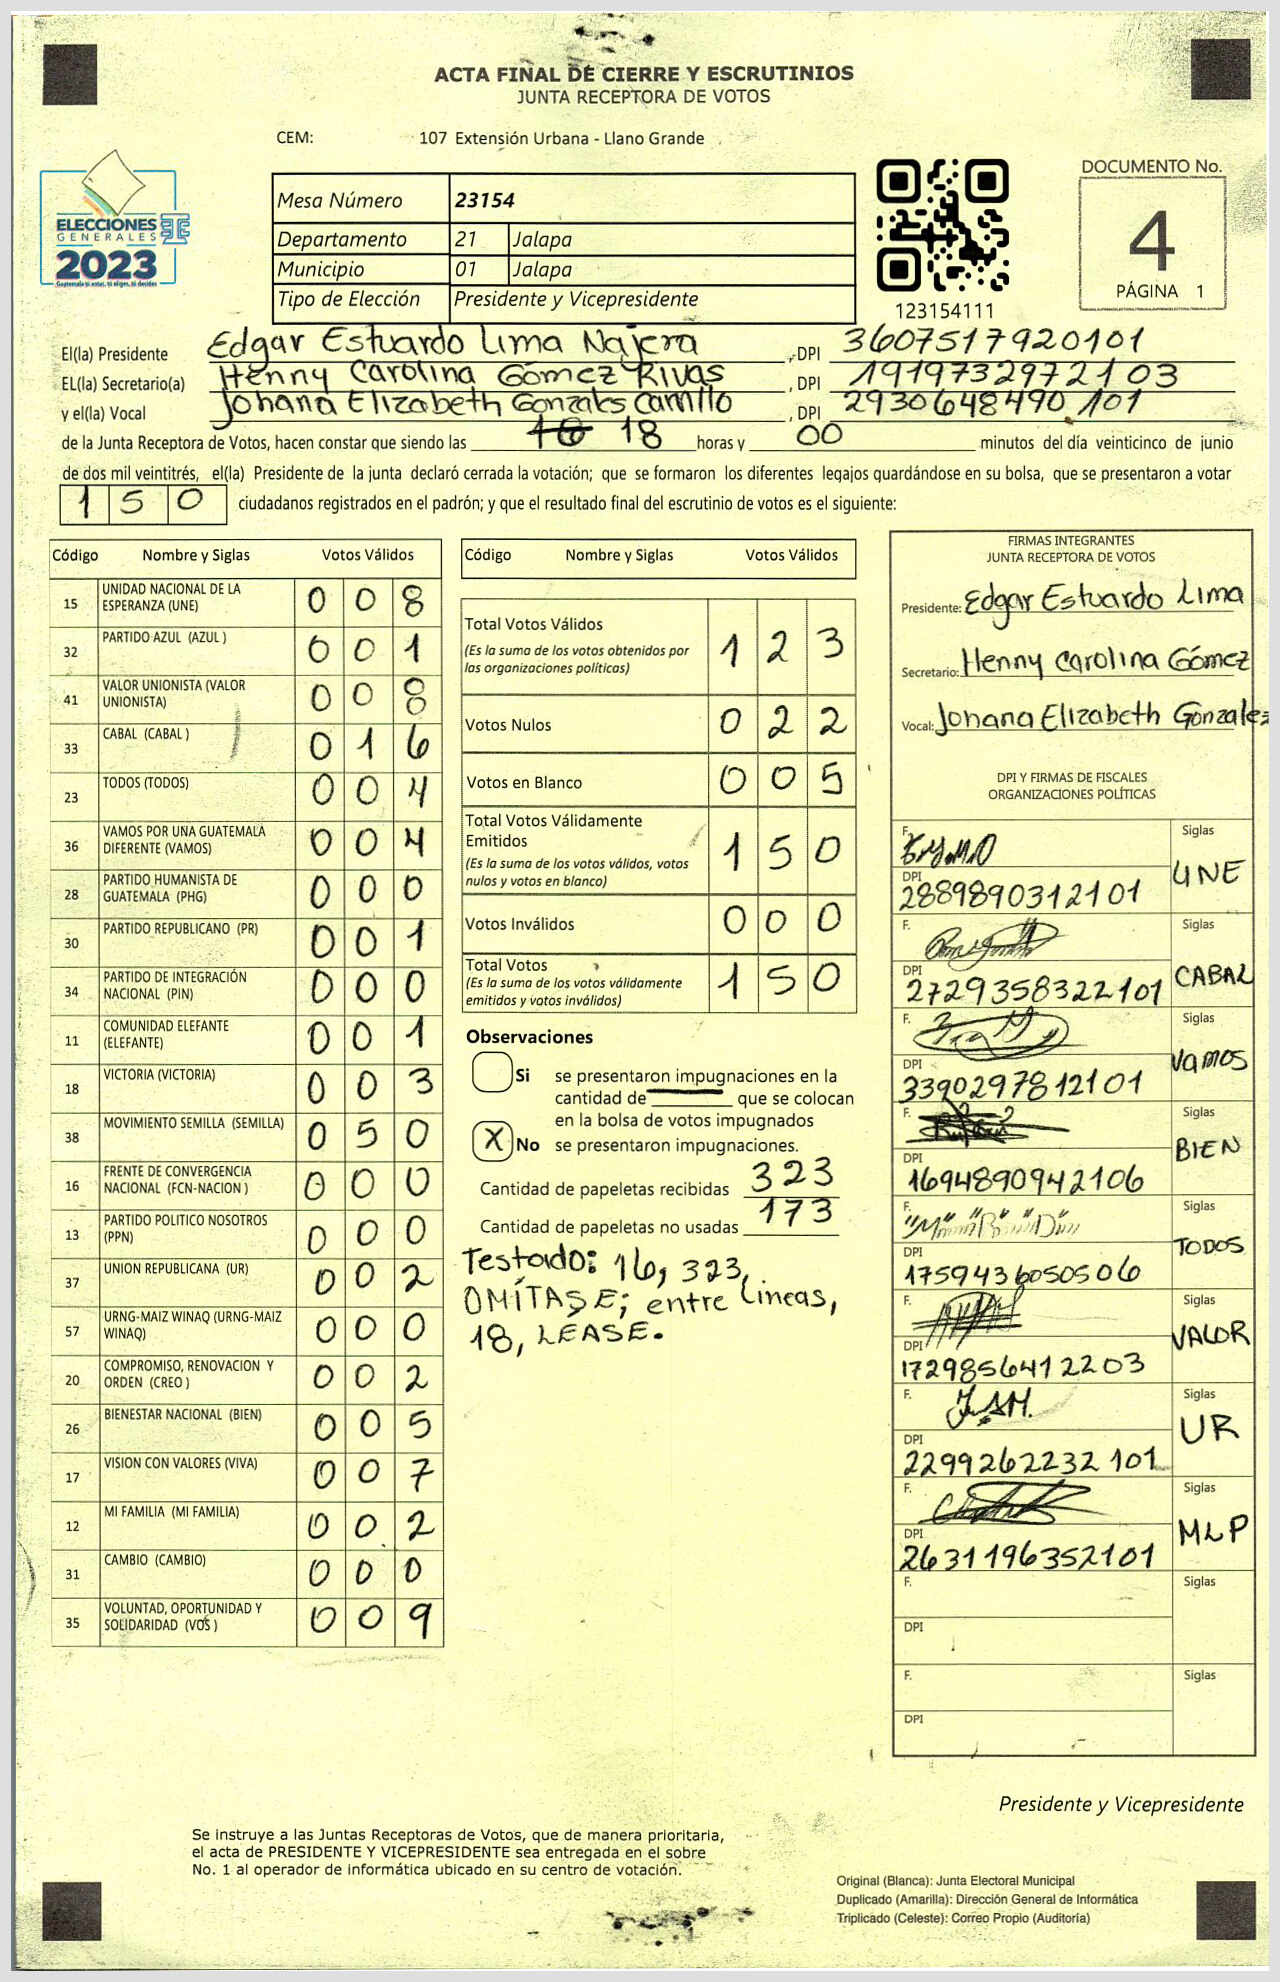 ACTA FINAL DE CIERRE Y ESCRUTINIOS
JUNTA RECEPTORA DE VOTOS
CEM: 107 Extensión Urbana - Llano Grande
ELECCIONES
GENERALES
2023
Mesa Número 23154
Departamento 21 Jalapa
Municipio 01 Jalapa
Tipo de Elección Presidente y Vicepresidente
123154111
DOCUMENTO No.
4
PÁGINA 1
El(la) Presidente Edgar Estuardo Lima Najera, DPI 3607517920101
EL(la) Secretario(a) Henny Carolina Gómez Rivas, DPI 1919732972103
y el(la) Vocal Johana Elizabeth Gonzales Carrillo, DPI 2930648490101
de la Junta Receptora de Votos, hacen constar que siendo las 16 18 horas y 00 minutos del día veinticinco de junio
de dos mil veintitrés, el(la) Presidente de la junta declaró cerrada la votación; que se formaron los diferentes legajos guardándose en su bolsa, que se presentaron a votar
150 ciudadanos registrados en el padrón; y que el resultado final del escrutinio de votos es el siguiente:
Código Nombre y Siglas Votos Válidos
15 UNIDAD NACIONAL DE LA ESPERANZA (UNE) 0 0 8
32 PARTIDO AZUL (AZUL ) 0 0 1
41 VALOR UNIONISTA (VALOR UNIONISTA) 0 0 8
33 CABAL (CABAL ) 0 1 6
23 TODOS (TODOS) 0 0 4
36 VAMOS POR UNA GUATEMALA DIFERENTE (VAMOS) 0 0 4
28 PARTIDO HUMANISTA DE GUATEMALA (PHG) 0 0 0
30 PARTIDO REPUBLICANO (PR) 0 0 1
34 PARTIDO DE INTEGRACIÓN NACIONAL (PIN) 0 0 0
11 COMUNIDAD ELEFANTE (ELEFANTE) 0 0 1
18 VICTORIA (VICTORIA) 0 0 3
38 MOVIMIENTO SEMILLA (SEMILLA) 0 5 0
16 FRENTE DE CONVERGENCIA NACIONAL (FCN-NACION ) 0 0 0
13 PARTIDO POLITICO NOSOTROS (PPN) 0 0 0
37 UNION REPUBLICANA (UR) 0 0 2
57 URNG-MAIZ WINAQ (URNG-MAIZ WINAQ) 0 0 0
20 COMPROMISO, RENOVACION Y ORDEN (CREO ) 0 0 2
26 BIENESTAR NACIONAL (BIEN) 0 0 5
17 VISION CON VALORES (VIVA) 0 0 7
12 MI FAMILIA (MI FAMILIA) 0 0 2
31 CAMBIO (CAMBIO) 0 0 0
35 VOLUNTAD, OPORTUNIDAD Y SOLIDARIDAD (VOS ) 0 0 9
Código Nombre y Siglas Votos Válidos
Total Votos Válidos 1 2 3
(Es la suma de los votos obtenidos por
las organizaciones políticas)
Votos Nulos 0 2 2
Votos en Blanco 0 0 5
Total Votos Válidamente
Emitidos 1 5 0
(Es la suma de los votos válidos, votos
nulos y votos en blanco)
Votos Inválidos 0 0 0
Total Votos 1 5 0
(Es la suma de los votos válidamente
emitidos y votos inválidos)
Observaciones
Si se presentaron impugnaciones en la
cantidad de que se colocan
en la bolsa de votos impugnados
X No se presentaron impugnaciones.
Cantidad de papeletas recibidas 323
Cantidad de papeletas no usadas 173
Testado: 16, 323,
OMÍTASE; entre lineas,
18, LEASE.
FIRMAS INTEGRANTES
JUNTA RECEPTORA DE VOTOS
Presidente: Edgar Estuardo Lima
Secretario: Henny Carolina Gómez
Vocal: Johana Elizabeth Gonzalez
DPI Y FIRMAS DE FISCALES
ORGANIZACIONES POLÍTICAS
F. Siglas UNE
DPI 2889890312101
F. Siglas CABAL
DPI 2729358322101
F. Siglas VAMOS
DPI 3390297812101
F. Siglas BIEN
DPI 1694890942106
F. Siglas TODOS
DPI 1759436050506
F. Siglas VALOR
DPI 1729856412203
F. Siglas UR
DPI 2299262232101
F. Siglas MLP
DPI 2631196352101
F. Siglas
DPI
F. Siglas
DPI
Presidente y Vicepresidente
Se instruye a las Juntas Receptoras de Votos, que de manera prioritaria,
el acta de PRESIDENTE Y VICEPRESIDENTE sea entregada en el sobre
No. 1 al operador de informática ubicado en su centro de votación.
Original (Blanca): Junta Electoral Municipal
Duplicado (Amarilla): Dirección General de Informática
Triplicado (Celeste): Correo Propio (Auditoría)